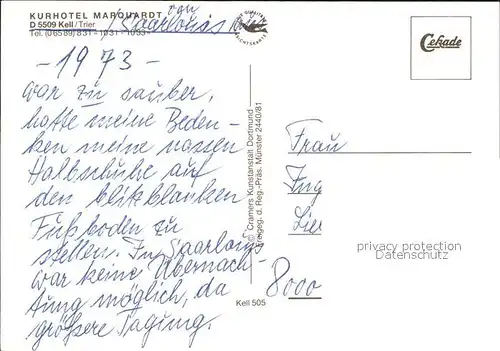 KURHOTEL MARQUARDT
D 5509 Kell/Trier
Tel. (06589) 831 - 1031 - 1033
von
Saarlouis
- 1973 -
war zu sauber,
hatte meine Beden-
ken meine nassen
Halbschuhe auf
den blitzblanken
Fußboden zu
stellen. In Saarlouis
war keine Übernach-
tung möglich, da
größere Tagung.
© Cramers Kunstanstalt Dortmund
Freigeg. d. Reg.-Präs. Münster 2440/81
Kell 505
Cekade
Frau
Ing
8000
privacy protection
Ansichtskarten-Center